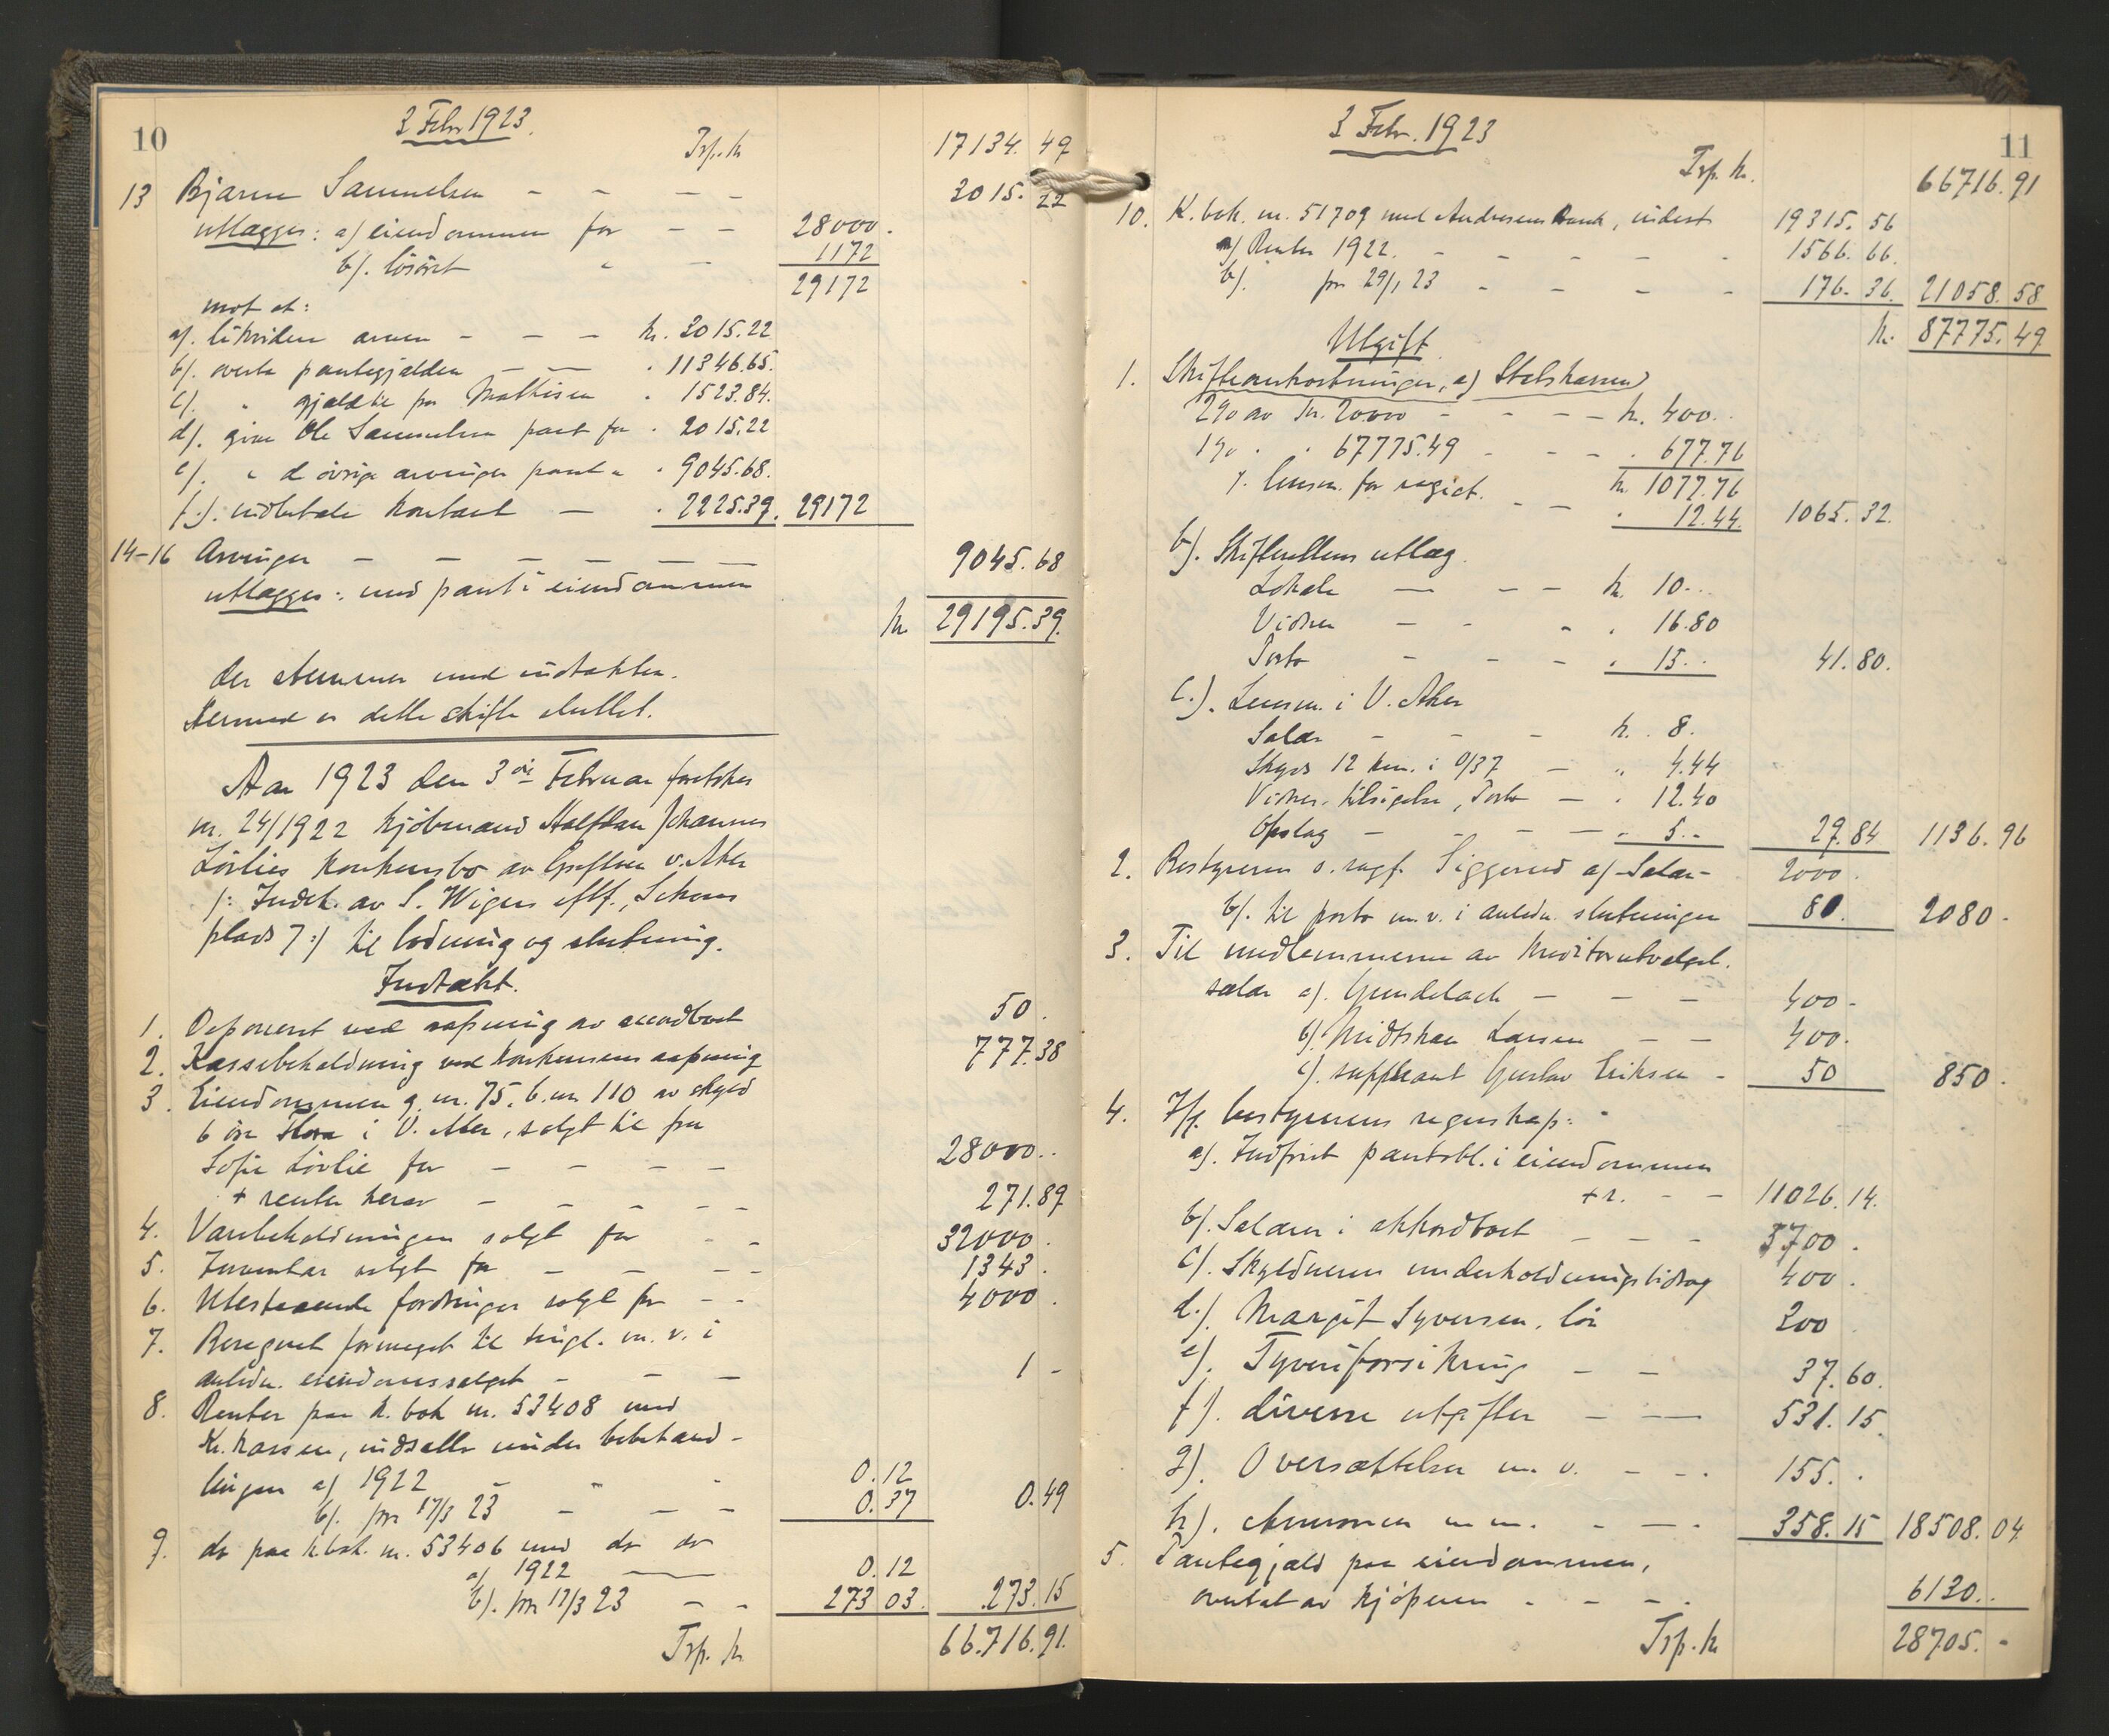 10
3 Febr 1923.
Trsp. kr 17134.49
13 Bjarne Samuelsen - - - - 3015.22
utlægges: a/ eiendommen for - - 28000.
b/. løsøret " - 1172
29172
mot at:
a/. likvidere arven - - - kr. 3015.22
b/. overta pantegjælden - - . 11346.65.
c/. " gjæld til fru Mathisen . 1523.84.
d/. give Ole Samuelsen pant for . 2015.22
e/. " de øvrige arvinger pant " . 9045.68.
f./. indbetale kontant - . 2225.39. 29172
14-16 Arvinger - - - - - - 9045.68
utlægges: med pant i eiendommen
kr. 29195.39.
der stemmer med indtækten.
Hermed er dette skifte sluttet.
Aar 1923 den 3die Februar foretokes
nr. 24/1922 kjøbmand Halfdan Johannes
Lövlies konkursbo av Grefsen v. Aker
/: Indeh. av S. Wigers eftf., Schous
plads 7 :/ til lodning og slutning.
Indtækt.
1. Deponeret ved aapning av akkordboet 50.
2. Kassebeholdning ved konkursens aapning 777.38
3. Eiendommen g. nr. 75, b. nr. 110 av skyld
6 øre i V. Aker, solgt til fru
Sofie Lövlie for - - - - 28000..
+ renter herav - - - - - 271.89
4. Varebeholdningen solgt for - - 32000.
5. Inventar solgt for - - - - 1343.
6. Utestaaende fordringer solgt for - - 4000.
7. Beregnet formeget til tingl. m. v. i
anledn. eiendomssalget - - - 1 -
8. Renter paa k. bok nr. 53408 med
Kr. kassen, indsatte under bobehand-
lingen a/ 1922 - " - 0.12
b/. pr 17/3 23 - - - 0.37 0.49
9. do paa k.bok. nr. 53406 med do do
a/ 1922 - 0.12
b/. pr 17/3 23 - - 273 03. 273.15
Trsp. kr 66.716.91.
11
3 Febr. 1923
Trsp. kr. 66716.91
10. K. bok. nr. 51709 med Andresens Bank, indest 19315.56
a/ Renter 1922. - - - - - 1566.66.
b/. pr 29/1 23 - - - - 176.36. 21058.58
kr. 87775.49
Utgift
1. Skifteomkostninger, a/ Statskassen
2% av kr. 20000 - - - - kr. 400..
1% . . 67775.49 - - - . 677.76
kr. 1077.76
÷ lensm. for regist. - - . 12.44. 1065.32.
b/. Skifterettens utlæg.
Lokale - - - kr. 10...
Vidner - - - . 16.80
Porto - - - . 15.. 41.80.
c./. Lensm. i V. Aker
Salær - - - kr. 8.
Skyds 12 km. i 0/37 - " 4.44
Vidner, tilsigelse, Porto - . 12.40
Opslag - - - - . 5.- 29.84 1136.96
2. Bestyreren o.ragf. Siggerud a/ Salær - 2000.
b/. til porto m.v. i anledn. slutningen 80. 2080 -
3. Til medlemmerne av kreditorutvalget.
salær a/. Gundelach - - - 400 -
b/. Midtskau Larsen - - 400.
c/. suppleant Gustav Eriksen - 50 850.
4. Iflg. bestyrerens regnskap:
a/. Indfriet pantobl. i eiendommen
+ r. - - 11026.14.
b/. Salærer i akkordboet - - - 5700.
c/. Skyldnerens underholdningsbidrag 400.
d./. Margit Syversen, løn 300
e/. Tyveriforsikring - - 37.60.
f/. diverse utgifter - - 531.15.
g/. Oversættelser m. v. - - . 155..
h/. Annoncer m.m. - - . 358.15 18508.04
5. Pantegjæld paa eiendommen,
overtat av kjøperen - - - . 6130..
Trsp. kr 28705.-